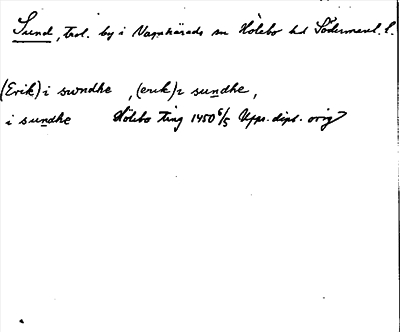 Sund, trol. by i Vagnhärads sn Hölebo hd Södermanl. l.
(Erik) i swndhe, (erik) i sundhe,
i sundhe Hölebo ting 1450 6/5 Upps. dipl. orig